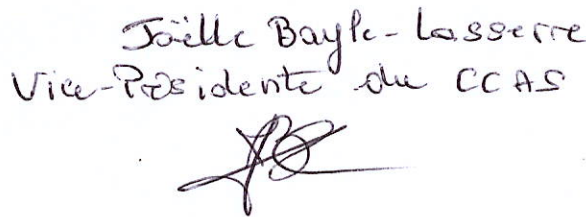 Joëlle Bayle-Lasserre
Vice-Présidente du CCAS